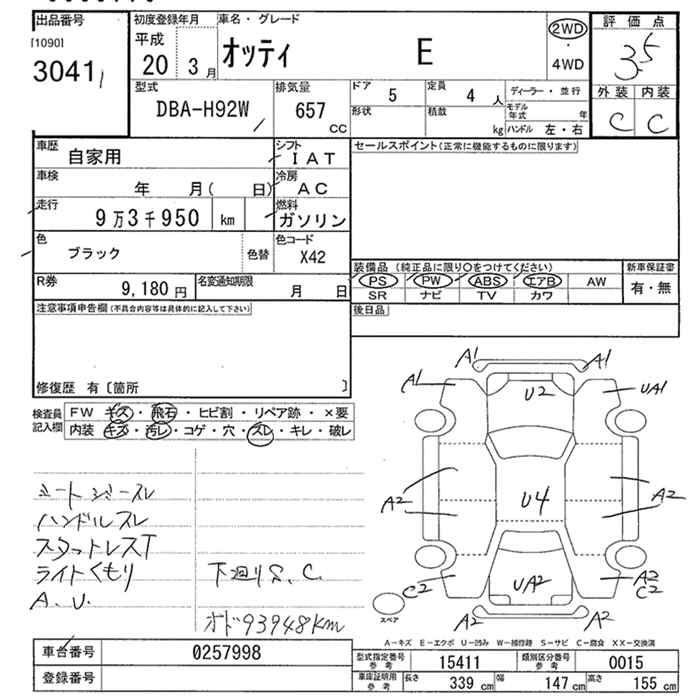 出品番号 初度登録年月 車名・グレード 2WD 評価点
[1090] 平成 オッティ E ・ 3.5
3041 20 3月 4WD
型式 排気量 ドア 定員 ディーラー・並行 外装 内装
DBA-H92W 657 CC 5 4人 モデル年式 年 C C
形状 積載 kg ハンドル 左・右
車歴 自家用 シフト IAT セールスポイント(正常に機能するものに限ります)
車検 年 月( 日) 冷房 AC
走行 9万3千950 km 燃料 ガソリン
色 ブラック 色替 色コード X42
装備品 (純正品に限り○をつけてください) 新車保証書
R券 9,180円 名変通知期限 月 日 PS PW ABS エアB AW 有・無
SR ナビ TV カワ
注意事項申告欄(不具合内容等は具体的に記入して下さい) 後日品
修復歴 有〔箇所 〕
検査員記入欄 FW キズ・飛石・ヒビ割・リペア跡・×要
内装 キズ・汚レ・コゲ・穴・スレ・キレ・破レ
A1 A1
A1 U2 UA1
A2 U4 A2
C2 UA2 A2 C2
A2 A2
スペア
シートジースレ
ハンドルスレ
スタットレスT
ライトくもり 下廻りS.C.
A.U.
オド93948km
A-キズ E-エクボ U-凹み W-補修跡 S-サビ C-腐食 XX-交換済
車台番号 0257998 型式指定番号 参考 15411 類別区分番号 参考 0015
登録番号 車庫証明用 参考 長さ 339 cm 幅 147 cm 高さ 155 cm